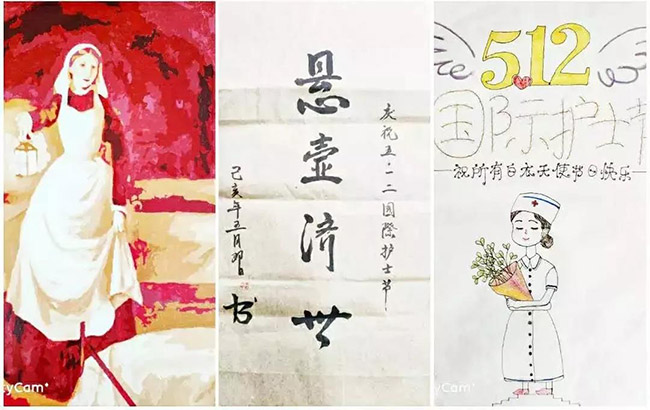 庆祝五·一二国際护士节
悬壶济世
己亥年五月
书
512
国际护士节
祝所有白衣天使节日快乐
yCam+